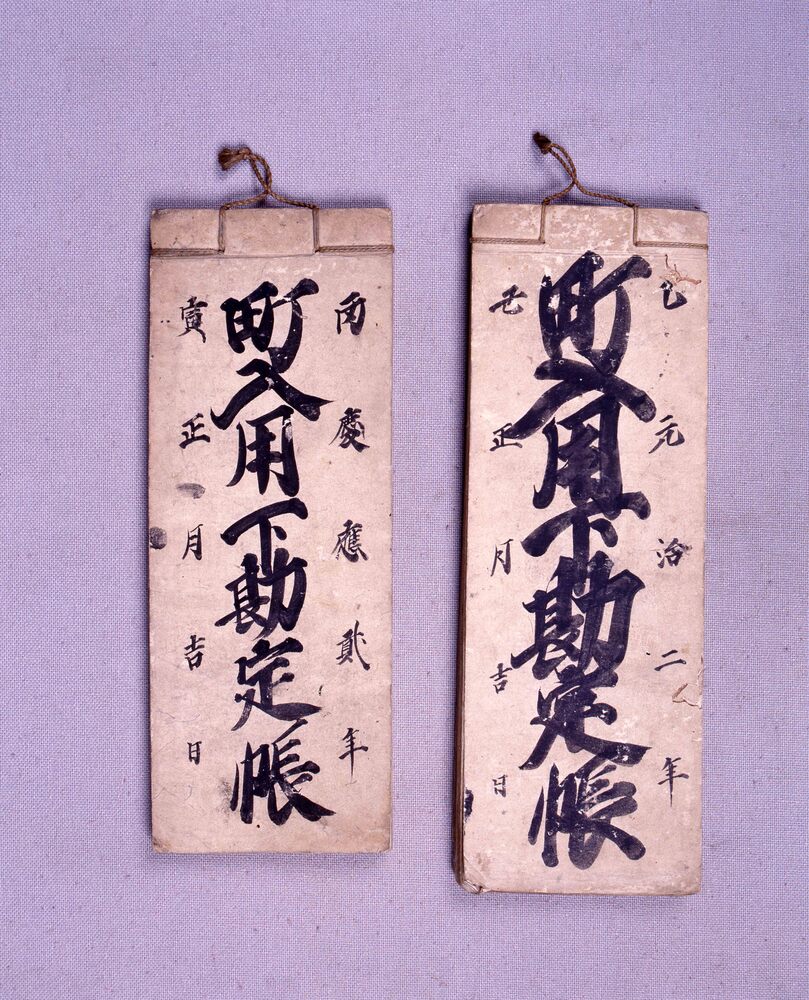 乙元治二年
町入用下勘定帳
丑正月吉日
丙慶應貳年
町入用下勘定帳
寅正月吉日